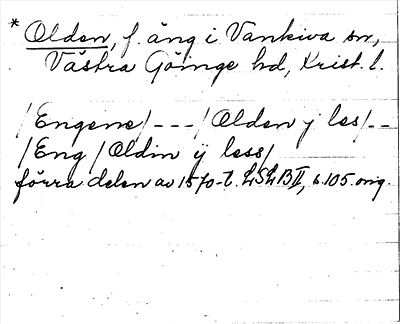 * Olden, f. äng i Vankiva sn,
Västra Göinge hd, Krist. l.
/Engene/---/Olden ÿ les/--
/Eng/Oldin ÿ less/
förra delen av 1570-t. LSLB II, s. 105. orig.